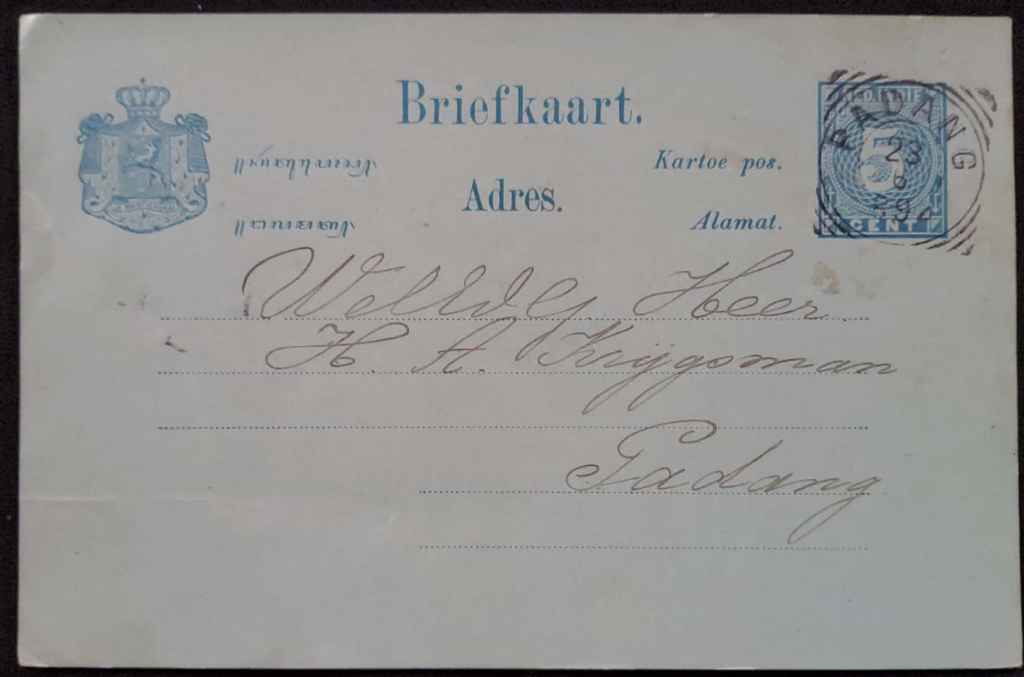 Briefkaart.
Kartoe pos.
Adres.
Alamat.
PADANG
23
94
5
CENT
WelEdG. Heer
H. A. Krijgsman
Padang